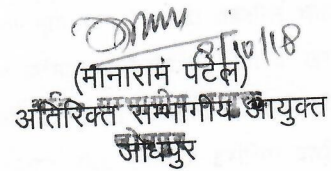 8/10/18
(मानाराम पटेल)
अतिरिक्त सम्भागीय आयुक्त
जोधपुर